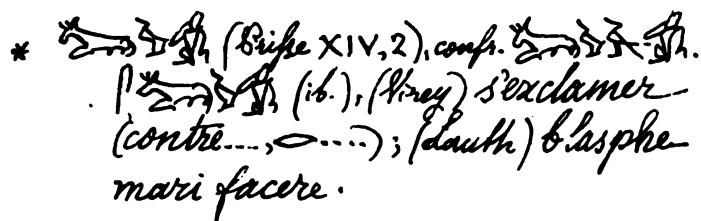 * (Prisse XIV, 2), confr. .
(ib.), (Virey) s'exclamer
(contre...., 𓂋....); (Lauth) blasphe-
mari facere.